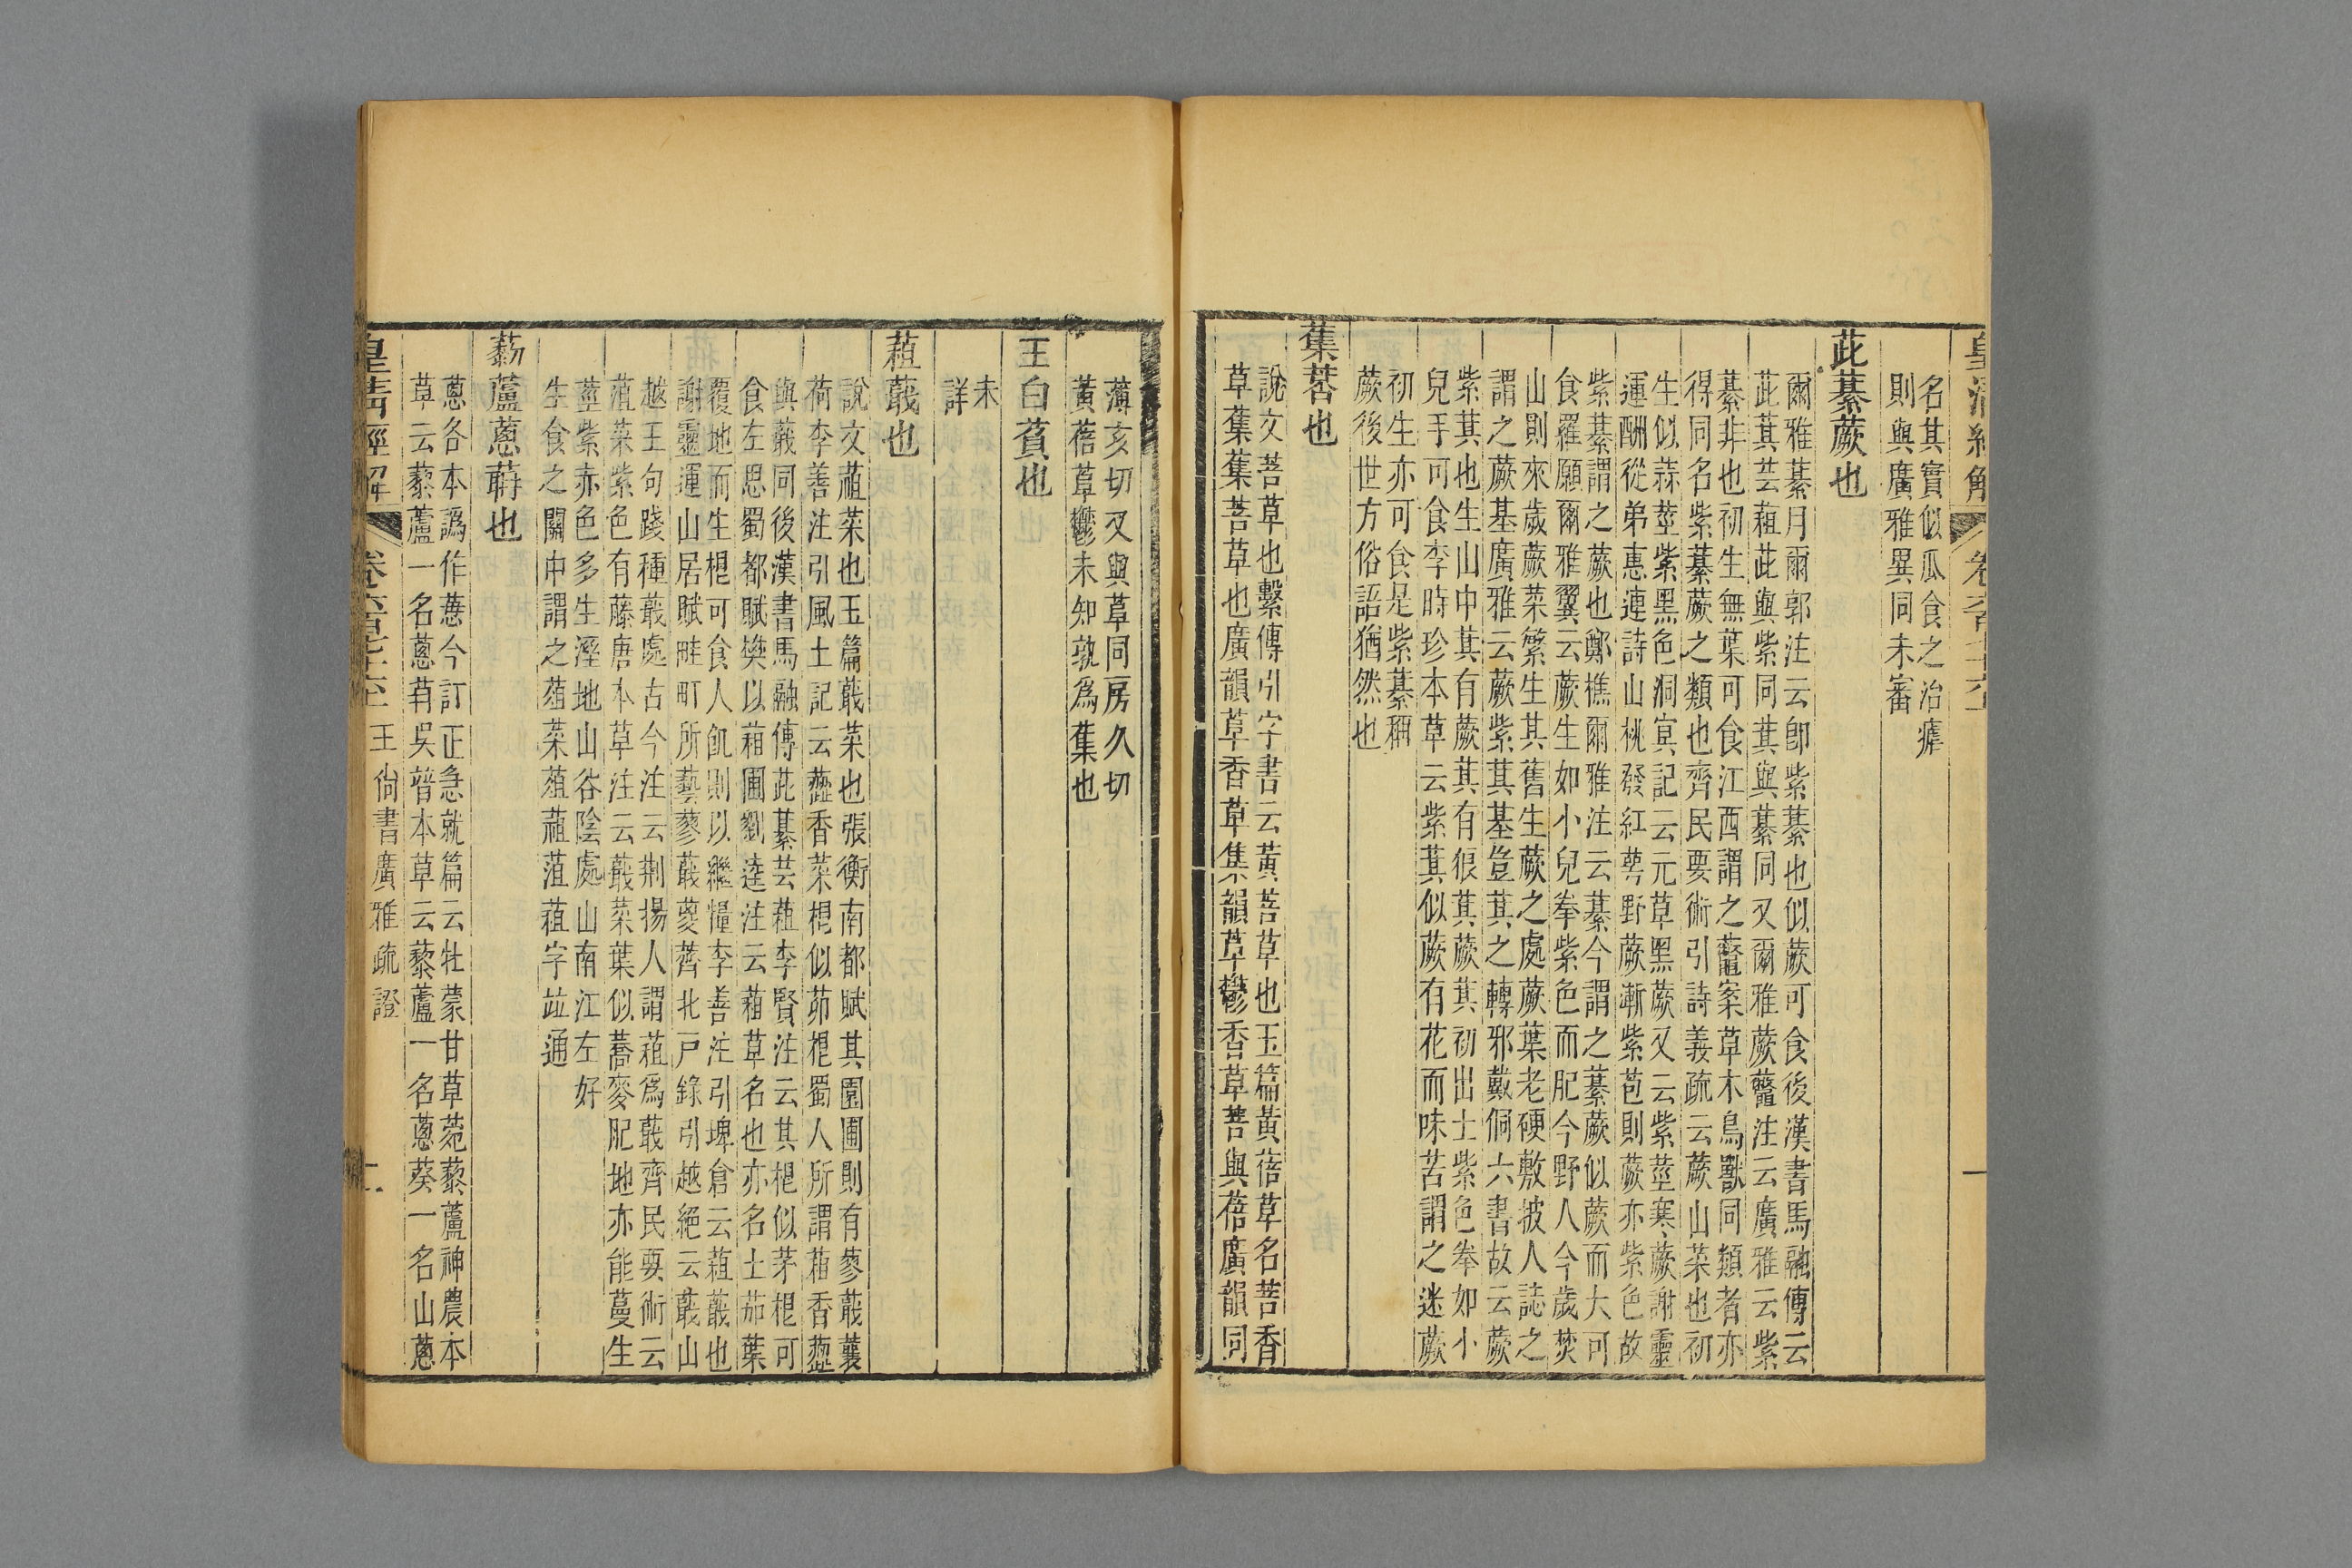 名其實似瓜食之治瘧
則與廣雅異同未審
茈綦蕨也
爾雅綦月爾郭注云卽紫綦也似蕨可食後漢書馬融傳云
茈萁芸蒩茈與紫同萁與綦同又爾雅蕨虌注云廣雅云紫
綦非也初生無葉可食江西謂之虌案草木鳥獸同類者亦
得同名紫綦蕨之類也齊民要術引詩義疏云蕨山菜也初
生似蒜莖紫黑色洞冥記云元草黑蕨又云紫莖寒蕨謝靈
運酬從弟惠連詩山桃發紅萼野蕨漸紫苞則蕨亦紫色故
紫綦謂之蕨也鄭樵爾雅注云綦今謂之綦蕨似蕨而大可
食羅願爾雅翼云蕨生如小兒拳紫色而肥今野人今歲焚
山則來歲蕨菜繁生其舊生蕨之處蕨葉老硬敷披人誌之
謂之蕨基廣雅云蕨紫萁基豈萁之轉邪戴侗六書故云蕨
紫萁也生山中萁有蕨萁有狼萁蕨萁初出土紫色拳如小
兒手可食李時珍本草云紫萁似蕨有花而味苦謂之迷蕨
初生亦可食是紫綦稱
蕨後世方俗語猶然也
蕉䓏也
說文菩草也繫傳引字書云黃菩草也玉篇黃蓓草名菩香
草蕉蕉菩草也廣韻草香草集韻䓏草鬱香草菩與蓓廣韻同
薄亥切又與䓏同房久切
黃蓓䓏鬱未知孰爲蕉也
王白萯也
未
詳
蒩蕺也
說文蒩菜也玉篇蕺菜也張衡南都賦其園圃則有蓼蕺蘘
荷李善注引風土記云蘁香菜根似茆根蜀人所謂蒩香蘁
與蕺同後漢書馬融傳茈綦芸蒩李賢注云其根似茅根可
食左思蜀都賦樊以蒩圃劉逵注云蒩草名也亦名土茄葉
覆地而生根可食人飢則以繼糧李善注引埤倉云蒩蕺也
謝靈運山居賦畦町所藝蓼蕺葼薺北戸錄引越絕云蕺山
越王句踐種蕺處古今注云荆揚人謂蒩爲蕺齊民要術云
蒩菜紫色有藤唐本草注云蕺菜葉似蕎麥肥地亦能蔓生
莖紫赤色多生溼地山谷陰處山南江左好
生食之關中謂之葅菜葅蒩菹蒩字竝通
藜蘆蔥䔑也
蔥各本譌作葱今訂正急就篇云牡蒙甘草菀藜蘆神農本
草云藜蘆一名蔥苒吳普本草云藜蘆一名蔥葵一名山蔥
皇清經解
王尙書廣雅疏證